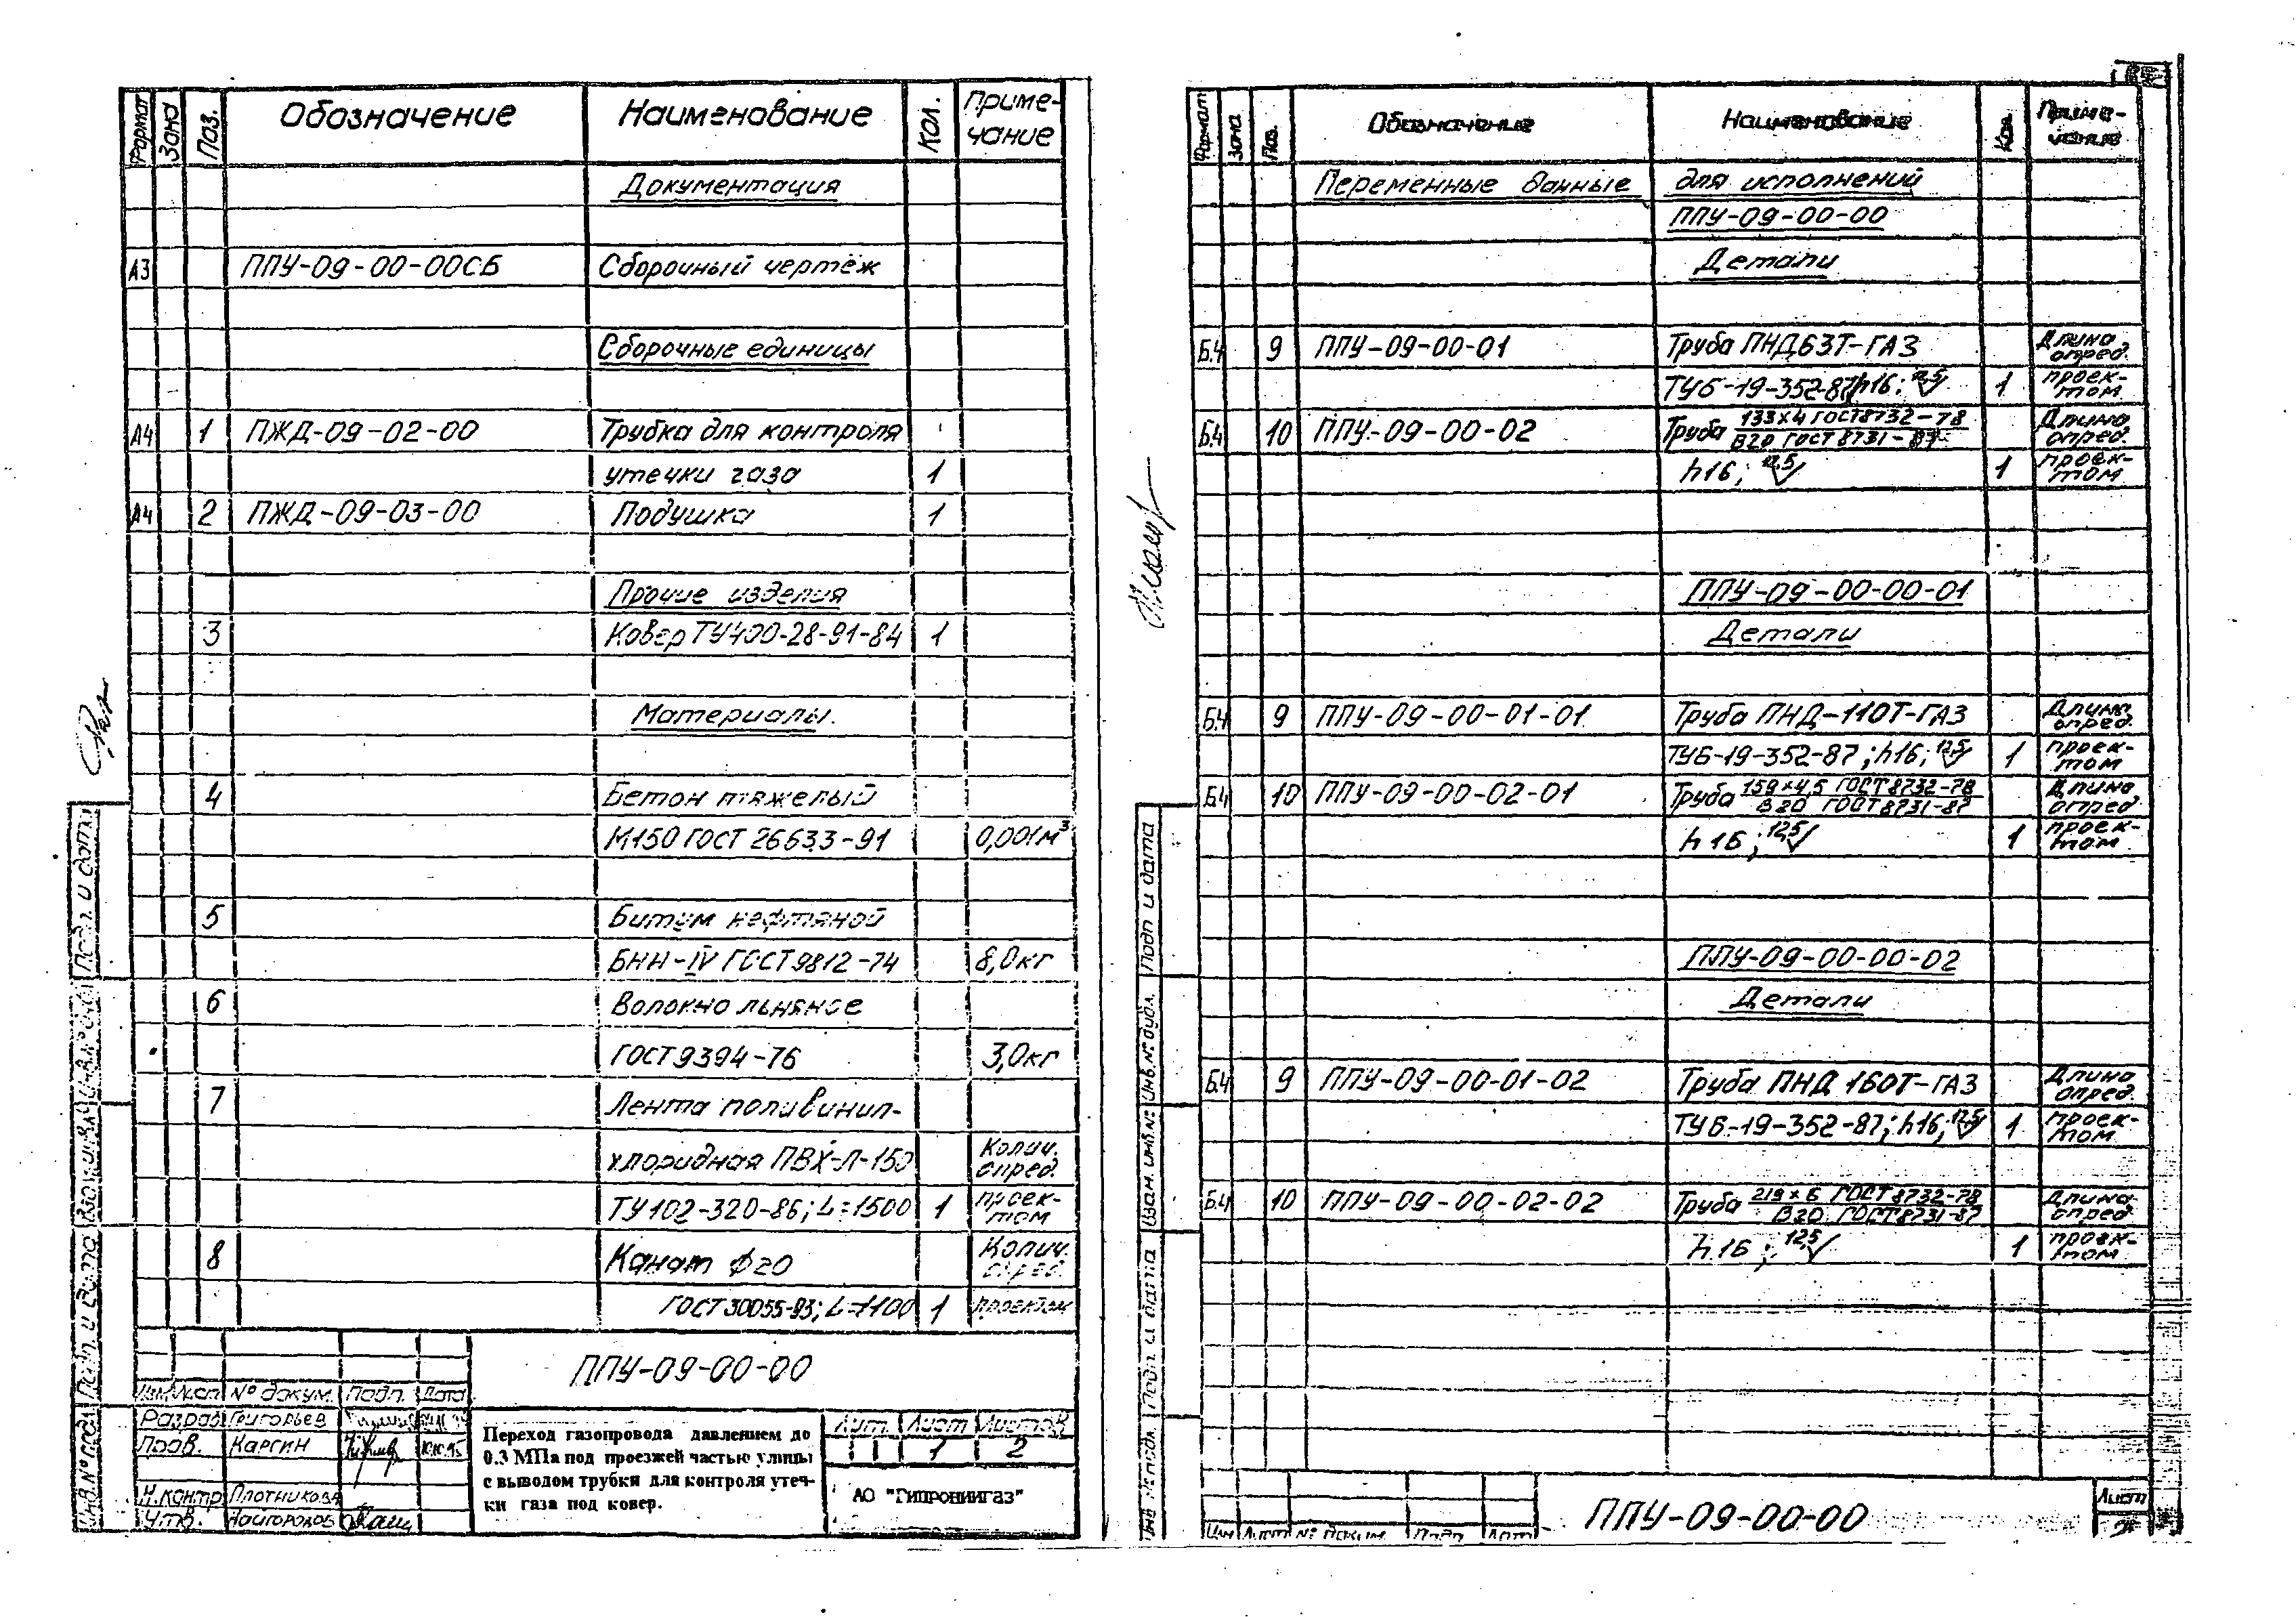 Формат Зона Поз. Обозначение Наименование Кол. Приме-
чание
Документация
А3 ППУ-09-00-00СБ Сборочный чертёж
Сборочные единицы
А4 1 ПЖД-09-02-00 Трубка для контроля
утечки газа 1
А4 2 ПЖД-09-03-00 Подушка 1
Прочие изделия
3 Ковер ТУ400-28-91-84 1
Материалы.
4 Бетон тяжелый
М150 ГОСТ 26633-91 0,001м³
5 Битум нефтяной
БНН-IV ГОСТ 9812-74 8,0кг
6 Волокно льняное
ГОСТ 9394-76 3,0кг
7 Лента поливинил-
хлоридная ПВХ-Л-150 Колич. опред.
ТУ102-320-86; L=1500 1 проек-
том
8 Канат ϕ20 Колич. опред.
ГОСТ 30055-93; L=1100 1 проектом
ППУ-09-00-00
Изм Лист № докум. Подп. Дата
Разраб Григорьев
Пров. Каргин 10.10.95
Н.контр Плотникова
Утв.
Переход газопровода давлением до
0.3 МПа под проезжей частью улицы
с выводом трубки для контроля утеч-
ки газа под ковер.
Лит. Лист Листов
1 2
АО "Гипрониигаз"
Инв.№ подл Подп. и дата Взам. инв.№ Подп. и дата
Формат Зона Поз. Обозначение Наименование Кол. Приме-
чание
Переменные данные для исполнений
ППУ-09-00-00
Детали
Б4 9 ППУ-09-00-01 Труба ПНД63Т-ГАЗ Длина
опред.
ТУ6-19-352-87; h16; 12,5 1 проек-
том
Б4 10 ППУ-09-00-02 Труба 133×4 ГОСТ 8732-78 Длина
В20 ГОСТ 8731-87 опред.
h16; 12,5 1 проек-
том
ППУ-09-00-00-01
Детали
Б4 9 ППУ-09-00-01-01 Труба ПНД-110Т-ГАЗ Длина
опред.
ТУ6-19-352-87; h16; 12,5 1 проек-
том
Б4 10 ППУ-09-00-02-01 Труба 159×4,5 ГОСТ 8732-78 Длина
В20 ГОСТ 8731-87 опред
h16; 12,5 1 проек-
том
ППУ-09-00-00-02
Детали
Б4 9 ППУ-09-00-01-02 Труба ПНД 160Т-ГАЗ Длина
опред.
ТУ6-19-352-87; h16; 12,5 1 проек-
том
Б4 10 ППУ-09-00-02-02 Труба 219×6 ГОСТ 8732-78 Длина
В20 ГОСТ 8731-87 опред
h16; 12,5 1 проек-
том
Изм Лист № докум. Подп Дат
ППУ-09-00-00
Лист
2
Инв № подл. Подп. и дата Взам. инв.№ Инв.№ дубл. Подп и дата